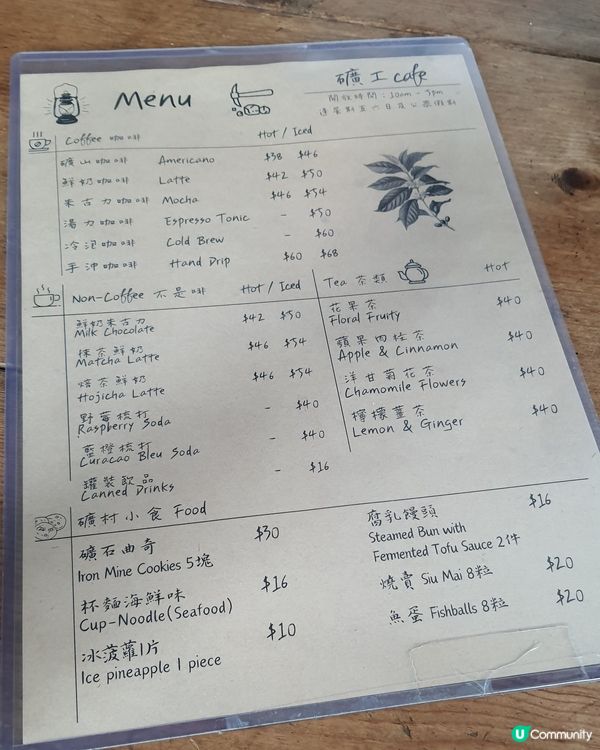 Menu
礦工 cafe
開放時間：10am - 5pm
逢星期五六日及公眾假期
Coffee 咖啡 Hot / Iced
礦山咖啡 Americano $38 $46
鮮奶咖啡 Latte $42 $50
朱古力咖啡 Mocha $46 $54
湯力咖啡 Espresso Tonic - $50
冷泡咖啡 Cold Brew - $60
手沖咖啡 Hand Drip $60 $68
Non-Coffee 不是啡 Hot / Iced
鮮奶朱古力 $42 $50
Milk Chocolate
抹茶鮮奶 $46 $54
Matcha Latte
焙茶鮮奶 $46 $54
Hojicha Latte
野莓梳打 - $40
Raspberry Soda
藍橙梳打 - $40
Curacao Bleu Soda
罐裝飲品 - $16
Canned Drinks
Tea 茶類 Hot
花果茶 $40
Floral Fruity
蘋果肉桂茶 $40
Apple & Cinnamon
洋甘菊花茶 $40
Chamomile Flowers
檸檬薑茶 $40
Lemon & Ginger
礦村小食 Food
礦石曲奇 $30
Iron Mine Cookies 5塊
杯麵海鮮味 $16
Cup-Noodle(Seafood)
冰菠蘿1片 $10
Ice pineapple 1 piece
腐乳饅頭 $16
Steamed Bun with
Fermented Tofu Sauce 2件
燒賣 Siu Mai 8粒 $20
魚蛋 Fishballs 8粒 $20
U Community